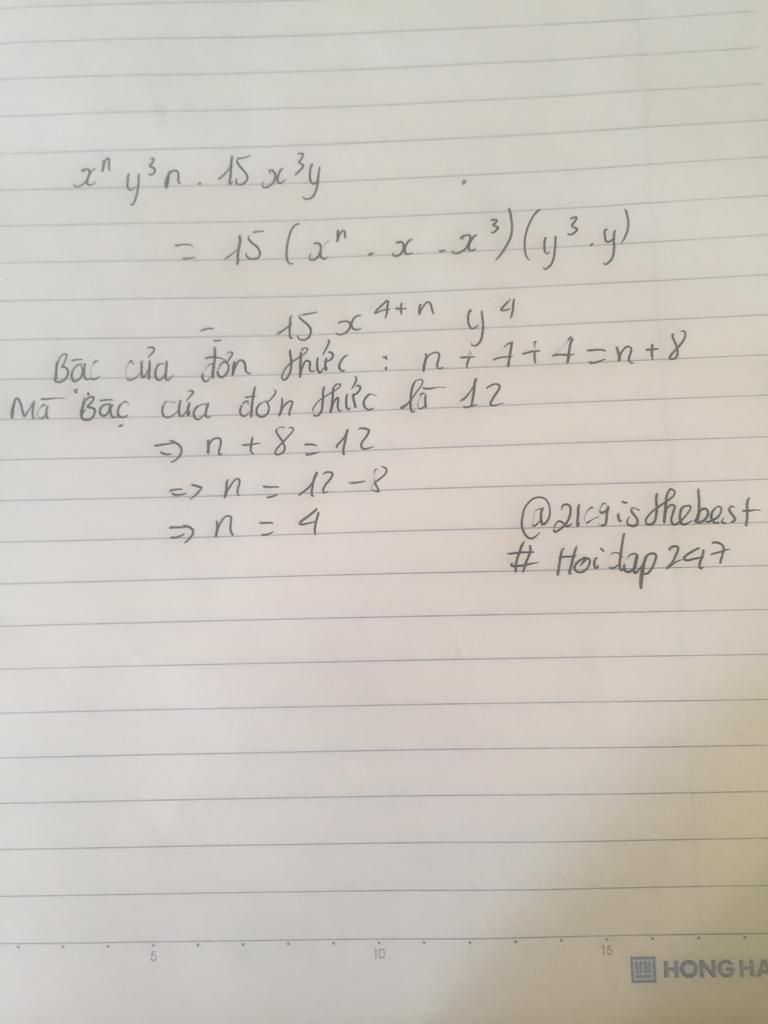 xⁿ y³n . 15 x³y
= 15 (xⁿ . x . x³)(y³ . y)
= 15 x⁴⁺ⁿ y⁴
Bậc của đơn thức : n + 4 + 4 = n + 8
Mà Bậc của đơn thức là 12
=> n + 8 = 12
=> n = 12 - 8
=> n = 4
@2k9isthebest
# Hoidap247
5 10 15
HONG HA